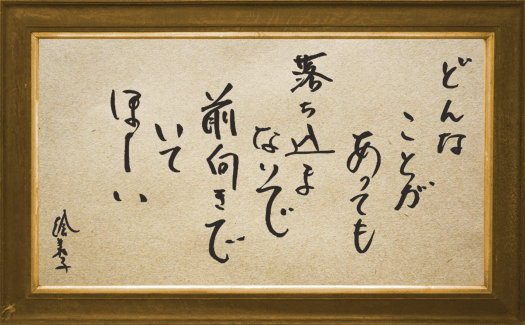 どんな
ことが
あっても
落ち込ま
ないで
前向きで
いて
ほしい
絵美子